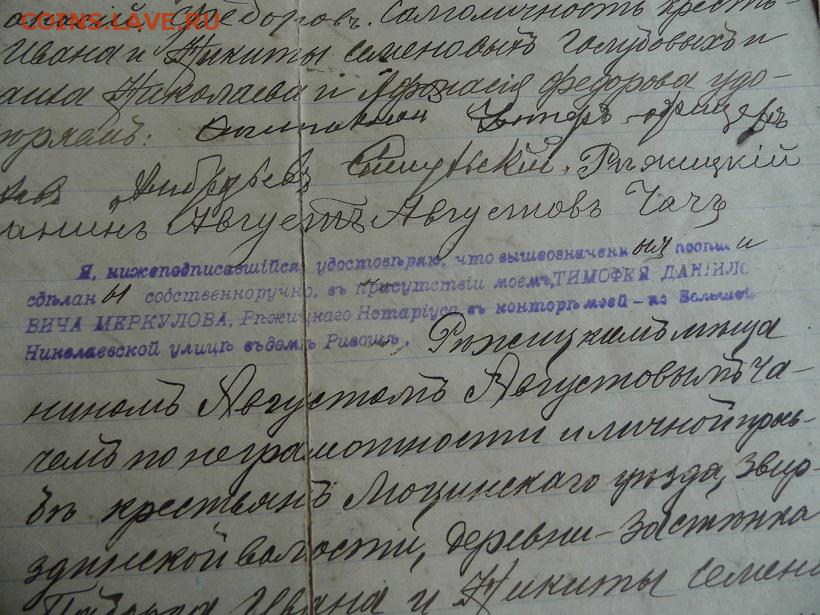 COINS.LAVE.RU
Ѳедоровъ. Самоличность кресть-
Ивана и Никиты Семеновыхъ Голубовыхъ и
Николаева и Афонасія Федорова удо-
Унтеръ-офицеръ
Рѣжицкій
Августъ Августовъ Чачъ
Я, нижеподписавшійся, удостовѣряю, что вышеозначенныя подписи
сдѣланы собственноручно, въ присутствіи моемъ, ТИМОФЕЯ ДАНИЛО
ВИЧА МЕРКУЛОВА, Рѣжицкаго Нотаріуса, въ конторѣ моей – по Большой
Николаевской улицѣ въ домѣ Ривошъ, Рѣжицкимъ мѣща
ниномъ Августомъ Августовымъ Ча-
чемъ по неграмотности и личной прозь-
бѣ крестьянъ Люцинскаго уѣзда, Звир-
здинской волости, деревни – Застѣнка
Ивана и Никиты Семено